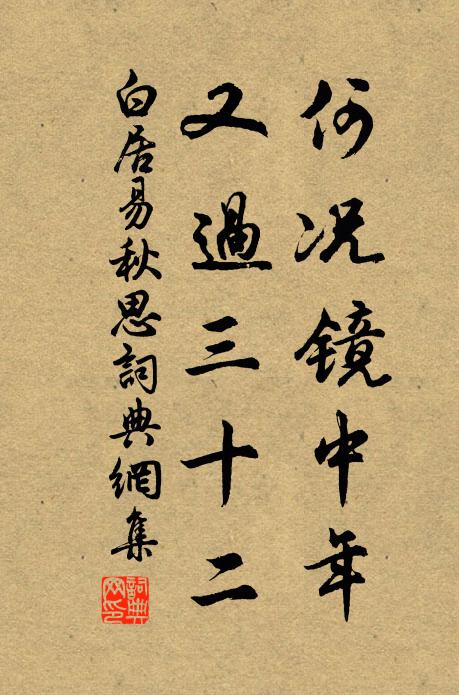 何况镜中年
又過三十二
白居易秋思詞典網集
詞典網印